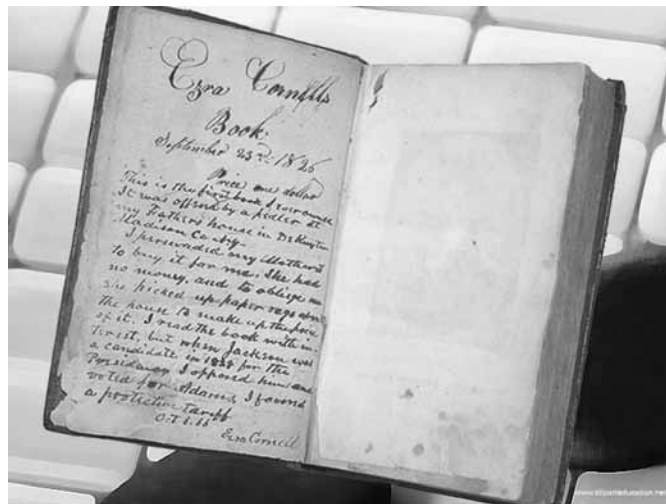 Ezra Cornell's
Book.
September 23rd. 1825
Price one dollar
This is the first book I ever owned
It was offered by a pedler at
my Fathers house in DeRuyter
Madison County.
I persuaded my Mother
to buy it for me. She had
no money, and to oblige me
she picked up paper rags about
the house to make up the price
of it. I read the book with in-
terest, but when Jackson was
a candidate in 1828 for the
Presidency I opposed him and
voted for Adams, I favored
a protective tariff
Oct
Ezra Cornell